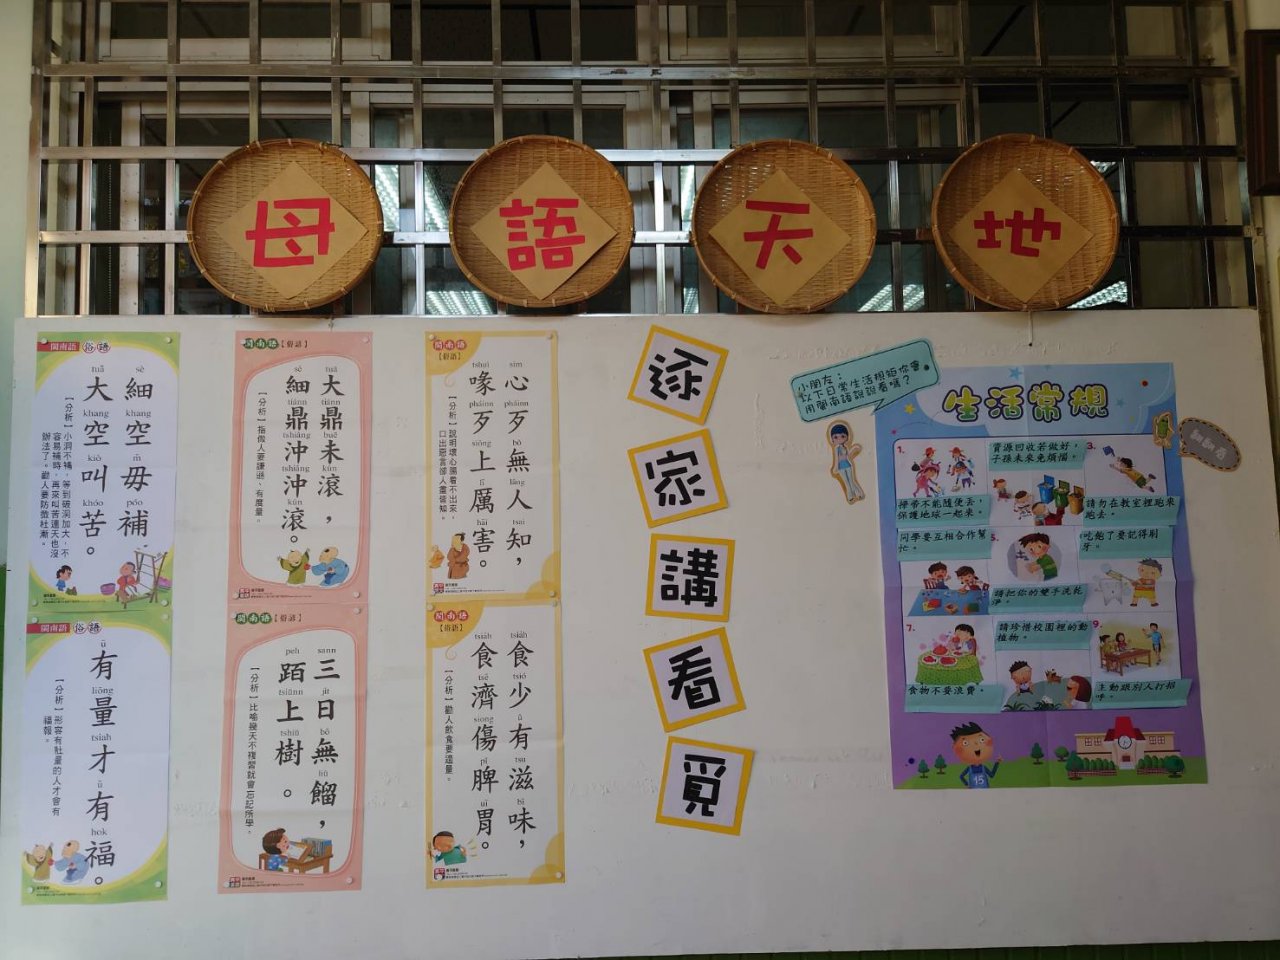 母語天地
閩南語 俗語
sè khang m̄ póo
細空毋補
tuā khang kiò khóo
大空叫苦。
【分析】小洞不補，等到破洞加大，不
容易補時，再來叫苦連天也沒
辦法了。勸人要防微杜漸。
閩南語 俗語
ū liōng tsiah ū hok
有量才有福。
【分析】形容有肚量的人才會有
福報。
閩南語【俗語】
tuā tiánn buē kún
大鼎未滾，
sè tiánn tshiâng tshiâng kún
細鼎沖沖滾。
【分析】指做人要謙遜、有度量。
閩南語【俗諺】
sann ji̍t bô liū
三日無餾，
peh tsiūnn tshiū
跖上樹。
【分析】比喻幾天不複習就會忘記所學。
閩南語
【俗語】
sim pháinn bô lâng tsai
心歹無人知，
tshuì pháinn siōng lī hāi
喙歹上厲害。
【分析】說明壞心腸看不出來，
口出惡言卻人盡皆知。
閩南語
【俗語】
tsia̍h tsió ū tsu bī
食少有滋味，
tsia̍h tsē siong pî uī
食濟傷脾胃。
【分析】勸人飲食要適量。
逐
家
講
看
覓
小朋友：
以下日常生活規矩你會
用閩南語說說看嗎？
生活常規
1.
掃帚不能隨便丟，
保護地球一起來。
資源回收若做好，
子孫未來免煩惱。
3.
請勿在教室裡跑來
跑去。
同學要互相合作幫
忙。
5.
請把你的雙手洗乾
淨。
吃飽了要記得刷
牙。
7.
食物不要浪費。
請珍惜校園裡的動
植物。
9.
主動跟別人打招
呼。
15